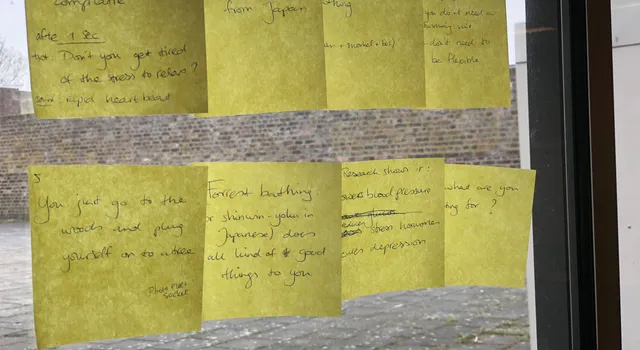 compliable
after 1 sec
hot: Don't you get tired
of the stress to relax?
rapid heart beat
from Japan
thing
you don't need a
don't need to
be flexible
5
You just go to the
woods and plug
yourself on to a tree
socket
Forrest bathing:
or shinwn-yoku in
Japanese) does
all kind of good
things to you
Research shows it:
owers blood pressure
stress hormones
ves depression
what are you
ting for?